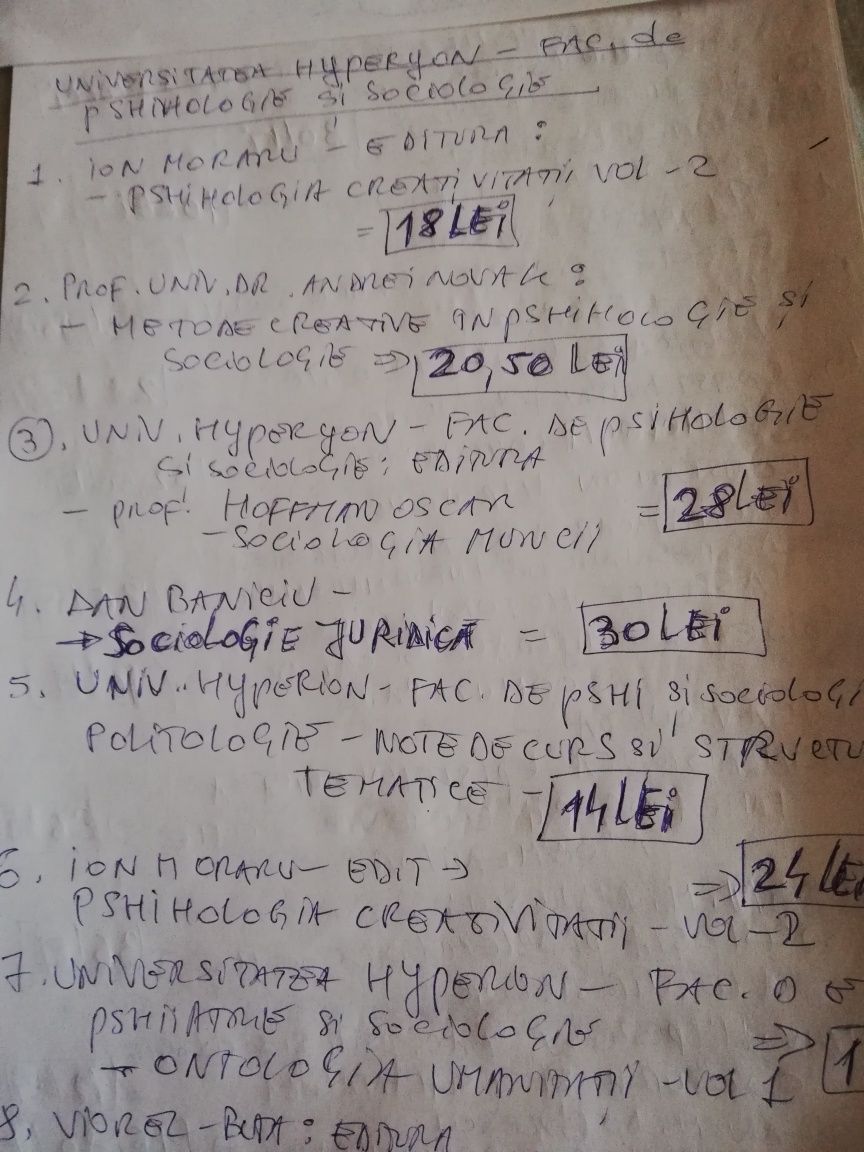 UNIVERSITATEA HYPERYON - FAC. de
PSHIHOLOGIE SI SOCIOLOGIE
1. ION MORARU - EDITURA:
- PSHIHOLOGIA CREATIVITATII, VOL - 2
= 18 LEI
2. PROF. UNIV. DR. ANDREI NOVAK:
- METODE CREATIVE IN PSHIHOLOGIE ȘI
SOCIOLOGIE => 20,50 LEI
3. UNIV. HYPERYON - FAC. DE PSIHOLOGIE
SI SOCIOLOGIE: EDITURA
- PROF. HOFFMAN OSCAR = 28 LEI
- SOCIOLOGIA MUNCII
4. DAN BANICIU -
→ SOCIOLOGIE JURIDICA = 30 LEI
5. UNIV. HYPERION - FAC. DE PSHI SI SOCIOLOGI
POLITOLOGIE - NOTE DE CURS SI STRUCTU
TEMATICE - 14 LEI
6. ION MORARU - EDIT → => 24 LEI
PSHIHOLOGIA CREATIVITATII - VOL - 2
7. UNIVERSITATEA HYPERION - FAC. DE
SI SOCIOLOGIE =>
- ONTOLOGIA UMANITATII - VOL 1 1
8. VIOREL - : EDITURA